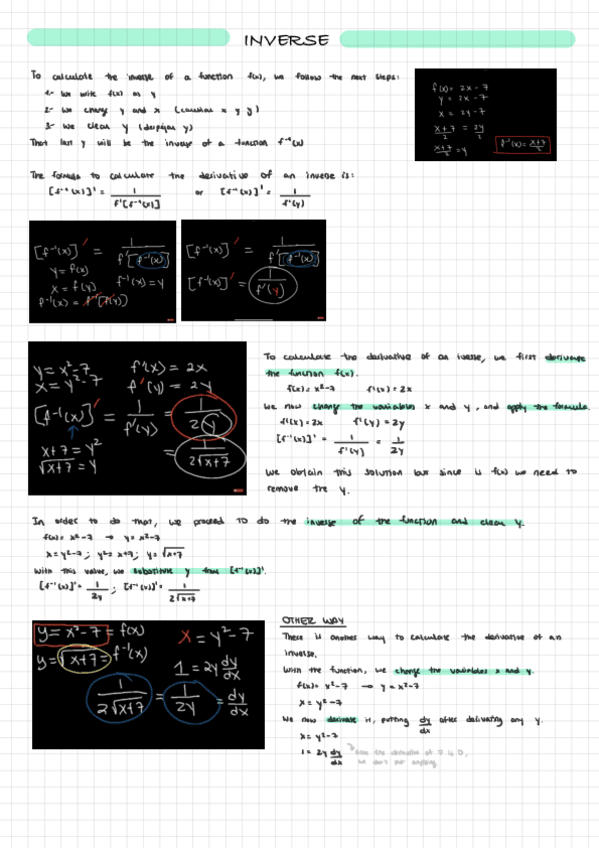 INVERSE
To calculate the inverse of a function f(x), we follow the next steps:
1- We write f(x) as y
2- We change y and x (cambias x y y)
3- We clear y (despejas y)
That last y will be the inverse of a function f⁻¹(x)
f(x) = 2x - 7
y = 2x - 7
x = 2y - 7
x+7/2 = 2y/2
x+7/2 = y
f⁻¹(x) = x+7/2
The formula to calculate the derivative of an inverse is:
[f⁻¹(x)]' = 1/f'[f⁻¹(x)] or [f⁻¹(x)]' = 1/f'(y)
[f⁻¹(x)]' = 1/f'[f⁻¹(x)]
y = f(x)
x = f(y) f⁻¹(x) = y
f⁻¹(x) = f⁻¹(f(y))
[f⁻¹(x)]' = 1/f'[f⁻¹(x)]
[f⁻¹(x)]' = 1/f'(y)
y = x²-7 f'(x) = 2x
x = y²-7 f'(y) = 2y
[f⁻¹(x)]' = 1/f'(y) = 1/2y
x+7 = y²
√x+7 = y = 1/2√x+7
To calculate the derivative of an iverse, we first derivate
the function f(x).
f(x) = x²-7 f'(x) = 2x
We now change the variables x and y, and apply the formula.
f'(x) = 2x f'(y) = 2y
[f⁻¹(x)]' = 1/f'(y) = 1/2y
We obtain this solution but since is f(x) we need to
remove the y.
In order to do that, we proceed TO do the inverse of the function and clear y.
f(x) = x²-7 → y = x²-7
x = y²-7; y² = x+7; y = √x+7
With this value, we substitute y from [f⁻¹(x)]'.
[f⁻¹(x)]' = 1/2y; [f⁻¹(x)]' = 1/2√x+7
y = x²-7 = f(x)
y = √x+7 = f⁻¹(x)
x = y²-7
1 = 2y dy/dx
1/2√x+7 = 1/2y = dy/dx
OTHER WAY
There is another way to calculate the derivative of an
inverse.
With the function, we change the variables x and y.
f(x) = x²-7 → y = x²-7
x = y²-7
We now derivate it, putting dy/dx after derivating any y.
x = y²-7
1 = 2y dy/dx
the derivative of 7 is 0,
we don't put anything